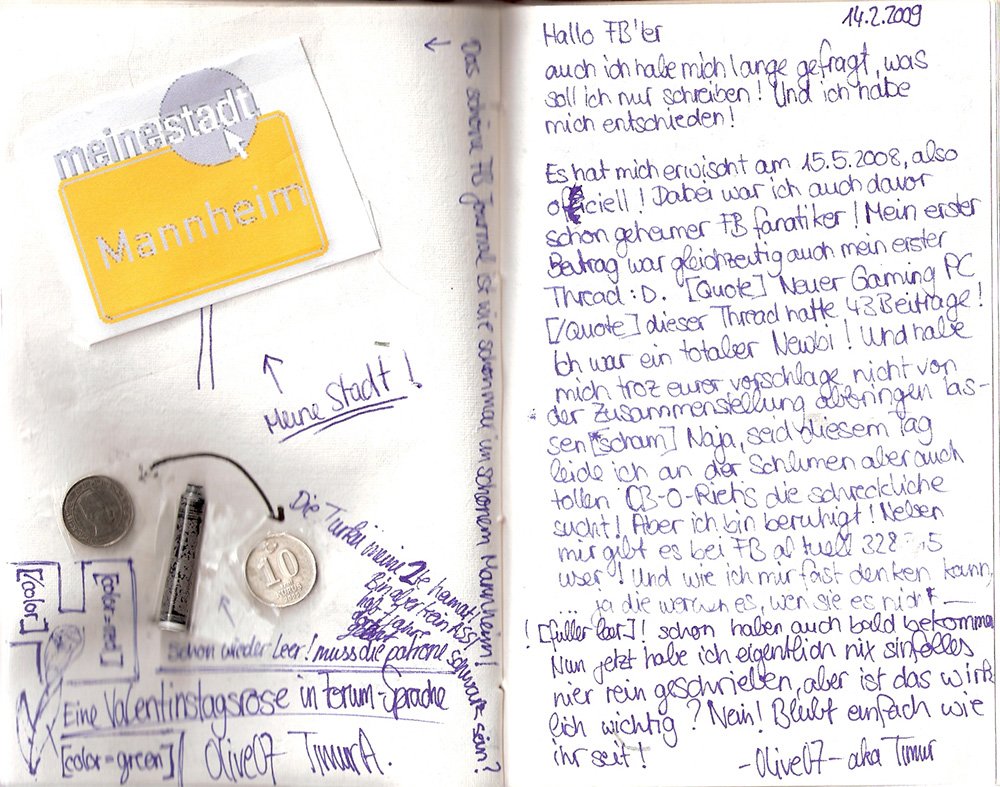 meinestadt
Mannheim
Meine Stadt!
Das schöne FB Journal ist wie schon mal in schönem Mannheim!
10
Die Türkei meine 2te heimat!
Bin aber kein Assi
dort
gelebt
schon wieder Leer! muss die patrone schwarz sein?
[/color]
[color=red]
Eine Valentinstagsrose in Forum-Sprache
[color=green]
Olive07 Timur A.
14.2.2009
Hallo FB'ler
auch ich habe mich lange gefragt, was
soll ich nur schreiben! Und ich habe
mich entschieden!
Es hat mich erwischt am 15.5.2008, also
officiell! Dabei war ich auch davor
schon geheimer FB fanatiker! Mein erster
Beitrag war gleichzeitig auch mein erster
Thread :D. [Quote] Neuer Gaming PC
[/Quote] dieser Thread hatte 43 Beiträge!
Ich war ein totaler Newbi! Und habe
mich troz eurer vorschläge nicht von
der Zusammenstellung abbringen las-
sen [scham] Naja, seid diesem Tag
leide ich an der Schlimmen aber auch
tollen
die schreckliche
sucht! Aber ich bin beruhigt! Neben
mir gibt es bei FB aktuell 328
user! Und wie ich mir fast denken kann,
... ja die werden es, wen sie es nicht
! [füller leer]! schon haben auch bald bekommen
Nun jetzt habe ich eigentlich nix sinfolles
hier rein geschrieben, aber ist das wirk
lich wichtig? Nein! Bleibt einfach wie
ihr seit!
-Olive07- aka Timur